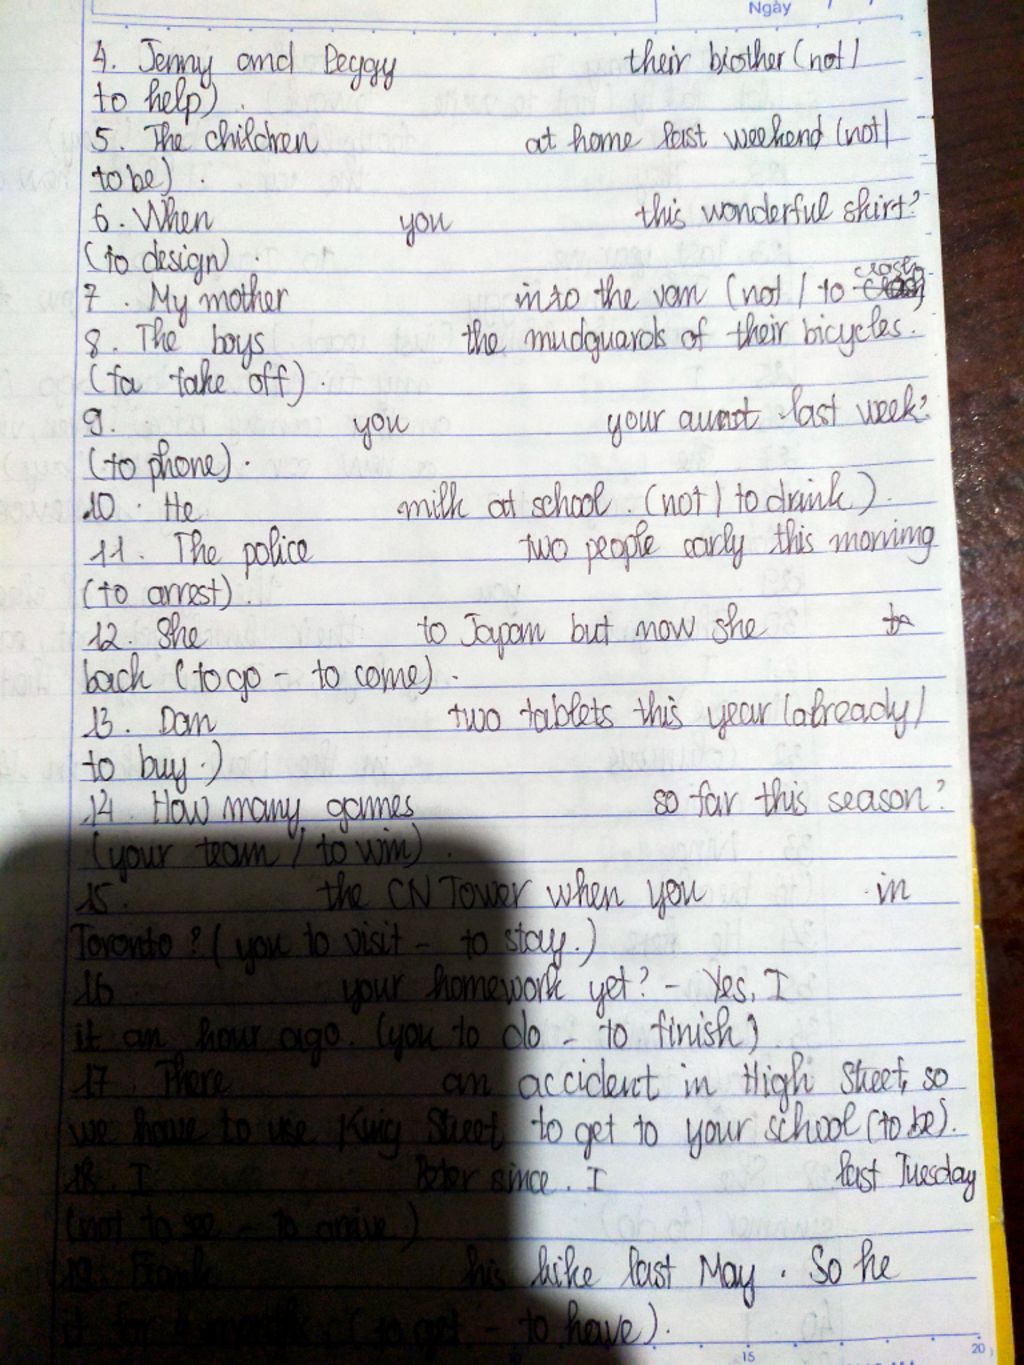 Ngày / /
4. Jenny and Peggy their brother (not /
to help).
5. The children at home last weekend (not /
to be).
6. When you this wonderful shirt?
(to design).
7. My mother into the van (not / to crash)
8. The boys the mudguards of their bicycles.
(to take off).
9. you your aunt last week?
(to phone).
10. He milk at school. (not / to drink).
11. The police two people early this morning
(to arrest).
12. She to Japan but now she
back (to go - to come).
13. Dan two tablets this year (already /
to buy.)
14. How many games so far this season?
(your team / to win).
15. the CN Tower when you in
Toronto? (you to visit - to stay.)
16 your homework yet? - Yes, I
it an hour ago. (you to do - to finish)
17. There an accident in High Street, so
we have to use King Street to get to your school (to be).
18. I Peter since. I last Tuesday
(not to see - to arrive.)
19. Frank his bike last May. So he
it for 4 months. (to get - to have).
15
20